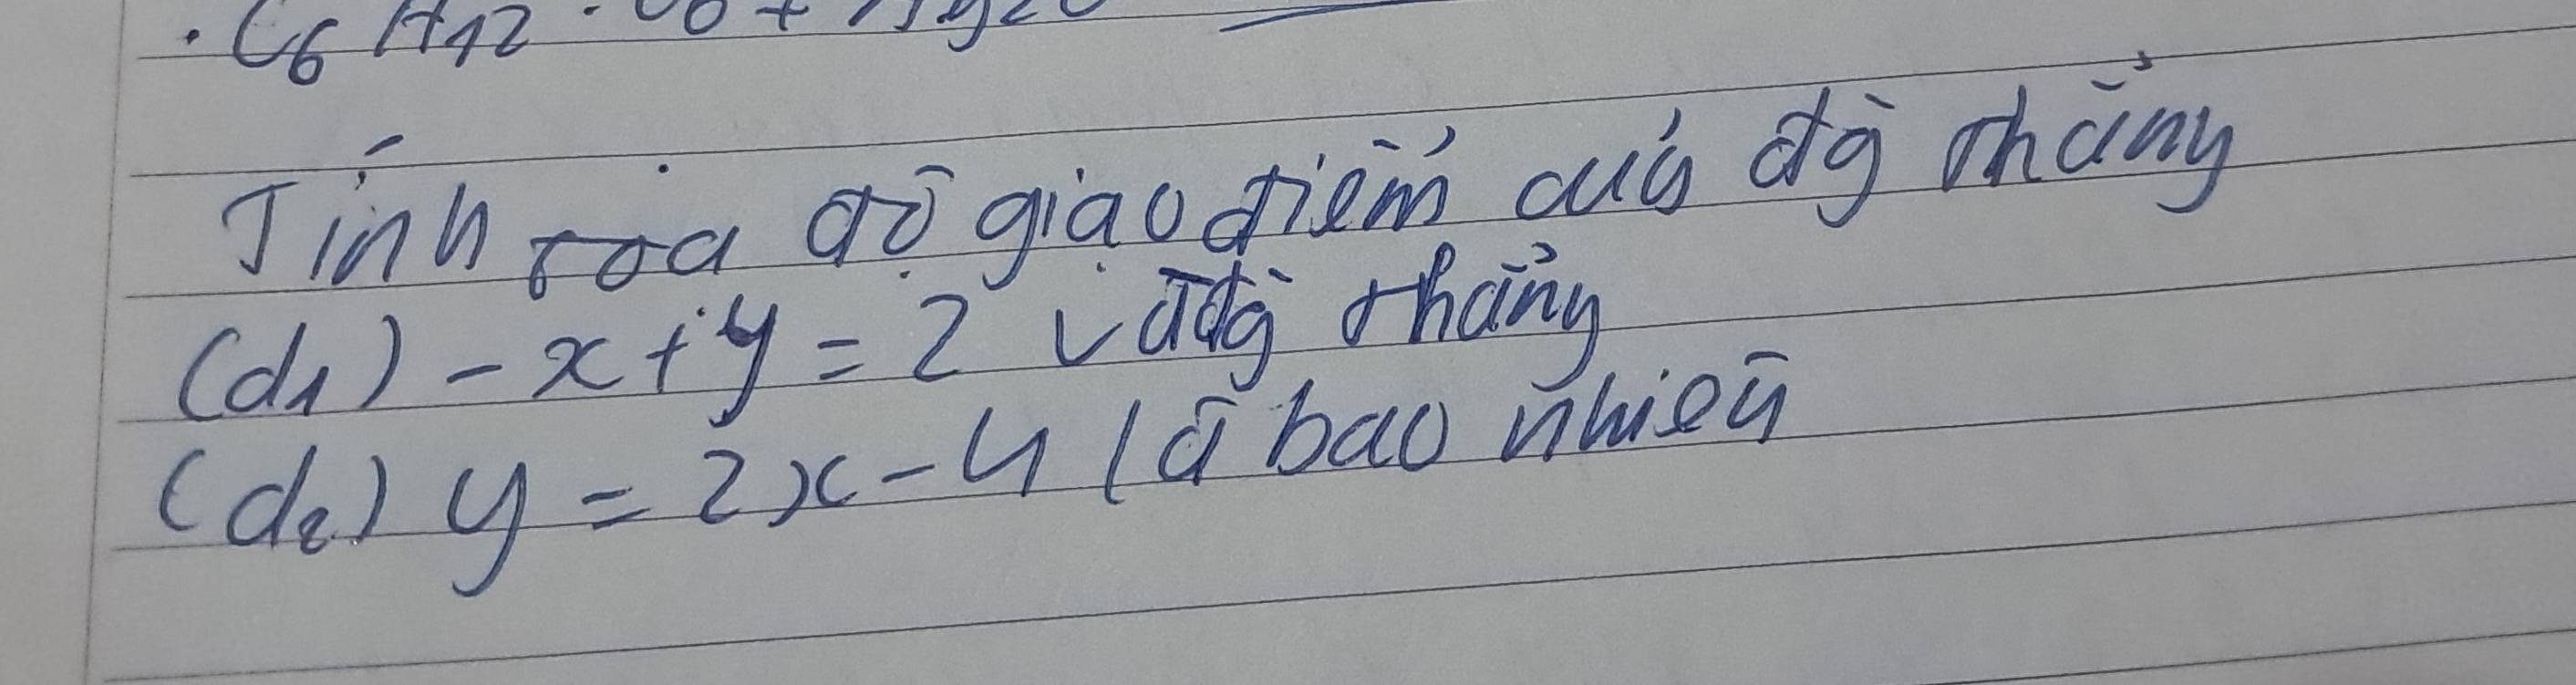 . C6 H12
Tính toạ độ giao điểm của đg thẳng
(d1) - x + y = 2 và đg thẳng
(d2) y = 2x - 4 là bao nhiêu